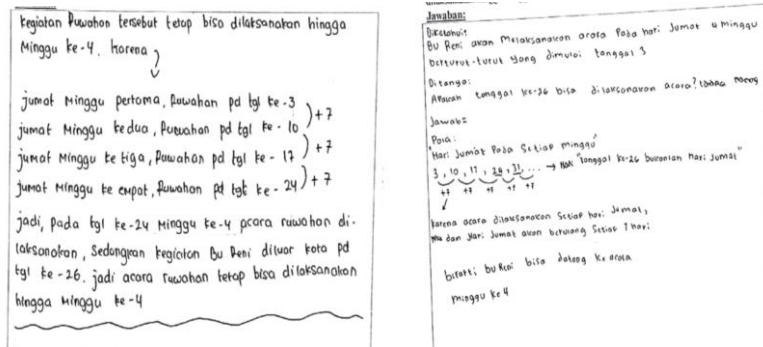 kegiatan Ruwahan tersebut tetap bisa dilaksanakan hingga
Minggu ke-4. karena
jumat Minggu pertama, Ruwahan pd tgl ke-3
jumat Minggu kedua, Ruwahan pd tgl ke-10
jumat Minggu ke tiga, Ruwahan pd tgl ke-17
jumat Minggu ke empat, Ruwahan pd tgl ke-24
)+7
)+7
)+7
jadi, pada tgl ke-24 Minggu ke-4 acara ruwahan di-
laksanakan, Sedangkan kegiatan Bu Reni diluar kota pd
tgl ke-26. jadi acara ruwahan tetap bisa dilaksanakan
hingga Minggu ke-4
Jawaban:
Diketahui:
Bu Reni akan Melaksanakan acara Pada hari Jumat 4 minggu
berturut-turut yang dimulai tanggal 3
Ditanya:
Apakah tanggal ke-26 bisa dilaksanakan acara?
Jawab:
Pola:
"Hari Jumat Pada Setiap minggu"
3, 10, 17, 24, 31, ... → "tanggal ke-26 bukanlah Hari Jumat"
+7 +7 +7 +7 +7
karena acara dilaksanakan Setiap hari Jumat,
dan Hari Jumat akan berulang Setiap 7 hari
berarti bu Reni bisa datang ke acara
minggu ke 4